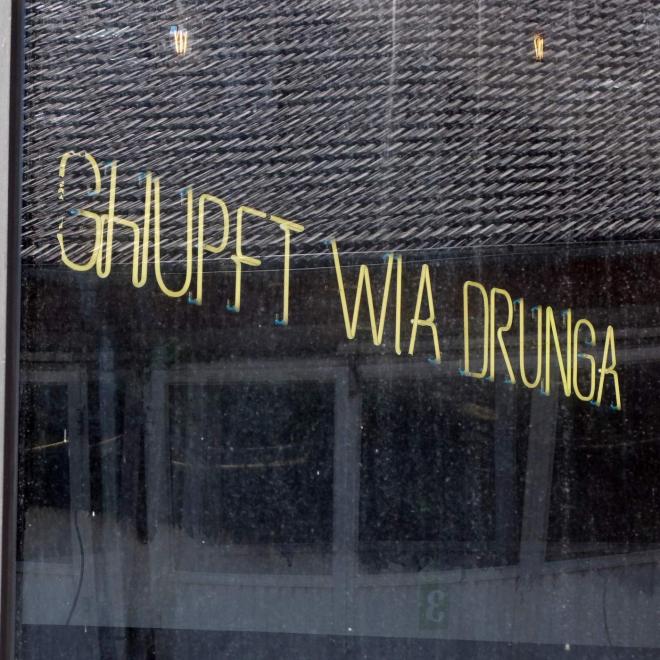 GHUPFT WIA DRUNGA
3